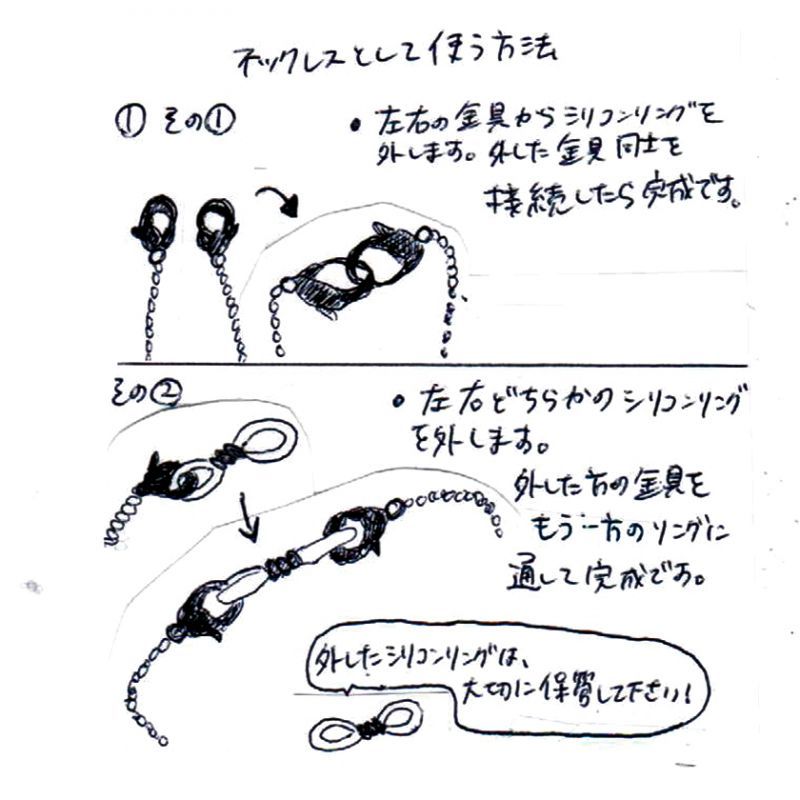 ネックレスとして使う方法
① その①
• 左右の金具からシリコンリングを
外します。外した金具同士を
接続したら完成です。
その②
• 左右どちらかのシリコンリング
を外します。
外した方の金具を
もう一方のリングに
通して完成です。
外したシリコンリングは、
大切に保管して下さい!